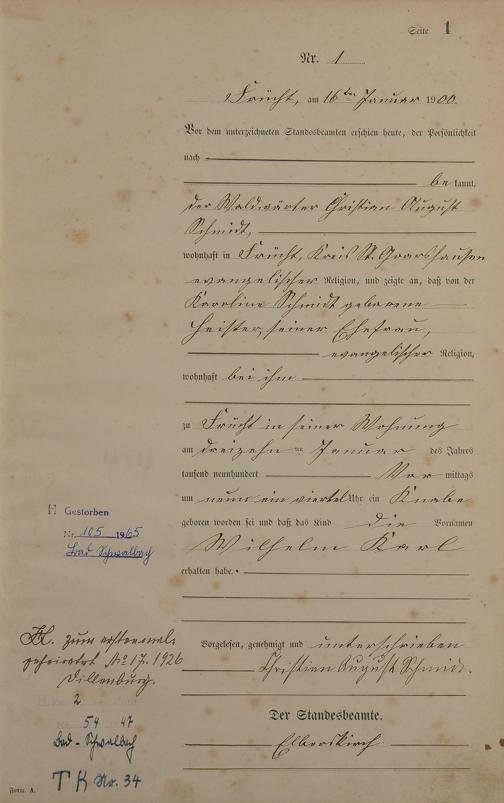 Seite 1
Nr. 1
Frücht, am 16ten Januar 1900.
Vor dem unterzeichneten Standesbeamten erschien heute, der Persönlichkeit
nach
be kannt,
der Waldwärter Christian August
Schmidt,
wohnhaft in Frücht, Kreis St. Goarshausen
evangelischer Religion, und zeigte an, daß von der
Karoline Schmidt geborene
Heister, seiner Ehefrau,
evangelischer Religion,
wohnhaft bei ihm
zu Frücht in seiner Wohnung
am dreizehnten Januar des Jahres
tausend neunhundert Vor mittags
um neun ein viertel Uhr ein Knabe
geboren worden sei und daß das Kind die Vornamen
Wilhelm Karl
erhalten habe.
Vorgelesen, genehmigt und unterschrieben
Christian August Schmidt.
Der Standesbeamte.
Elberskirch
H Gestorben
Nr. 105 1965
Bad Schwalbach
H. zum erstenmale
geheiratet No 17. 1926
Dillenburg.
2
54 47
Bad-Schwalbach
TK Nr. 34
Form. A.